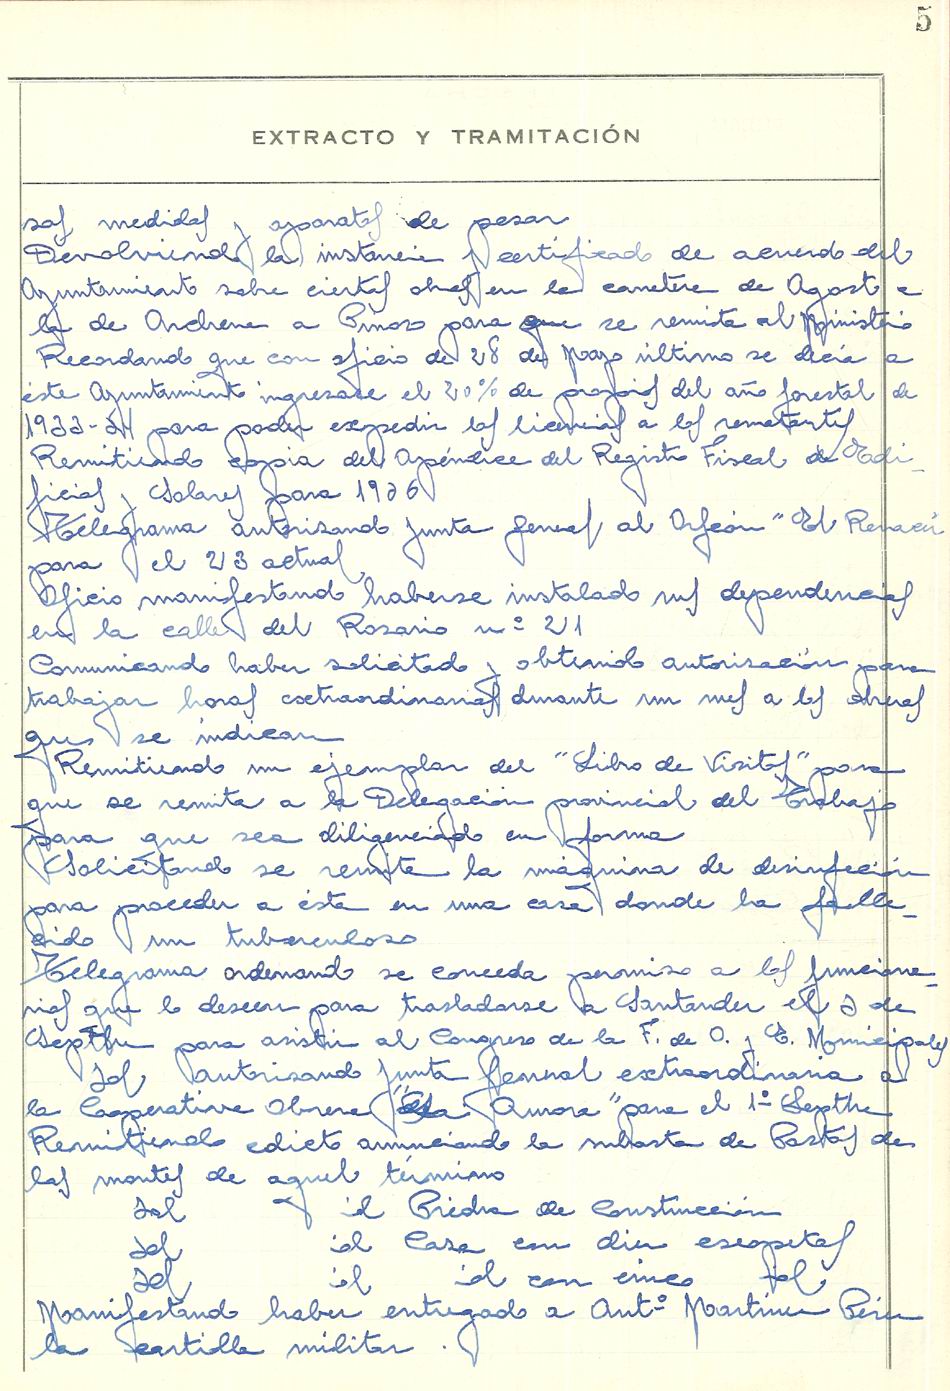 5
EXTRACTO Y TRAMITACIÓN
sas medidas y aparatos de pesar
Devolviendo la instancia y certificado de acuerdo del
Ayuntamiento sobre ciertas obras en la carretera de Agost a
la de Ordena a Pinoso para que se remita al Ministerio
Recordando que con oficio de 28 de Mayo último se decía a
éste Ayuntamiento ingresase el 20% de propios del año forestal de
1933-34 para poder expedir las licencias a los rematantes
Remitiendo copia del Apéndice del Registro Fiscal de Edi-
ficios y Solares para 1936
Telegrama autorizando Junta general al Orfeón "El Renacer
para el 23 actual
Oficio manifestando haberse instalado sus dependencias
en la calle del Rosario nº 21
Comunicando haber solicitado y obtenido autorización para
trabajar horas extraordinarias durante un mes a los obreros
que se indican
Remitiendo un ejemplar del "Libro de Visitas" para
que se remita a la Delegación provincial del Trabajo
para que sea diligenciado en forma
Solicitando se remita la máquina de desinfección
para proceder a ésta en una casa donde ha falle-
cido un tuberculoso
Telegrama ordenando se conceda permiso a los funciona-
rios que lo deseen para trasladarse a Santander el 3 de
Septbre para asistir al Congreso de la F. de O. y E. Municipales
Id autorizando Junta general extraordinaria a
la Cooperativa Obrera "La Aurora" para el 1º Septbre
Remitiendo edicto anunciando la subasta de Pastos de
los montes de aquel término
Id id Piedra de Construcción
Id id Caza con diez escopetas
Id id id con cinco id
Manifestando haber entregado a Antº Martínez Pérez
la cartilla militar.